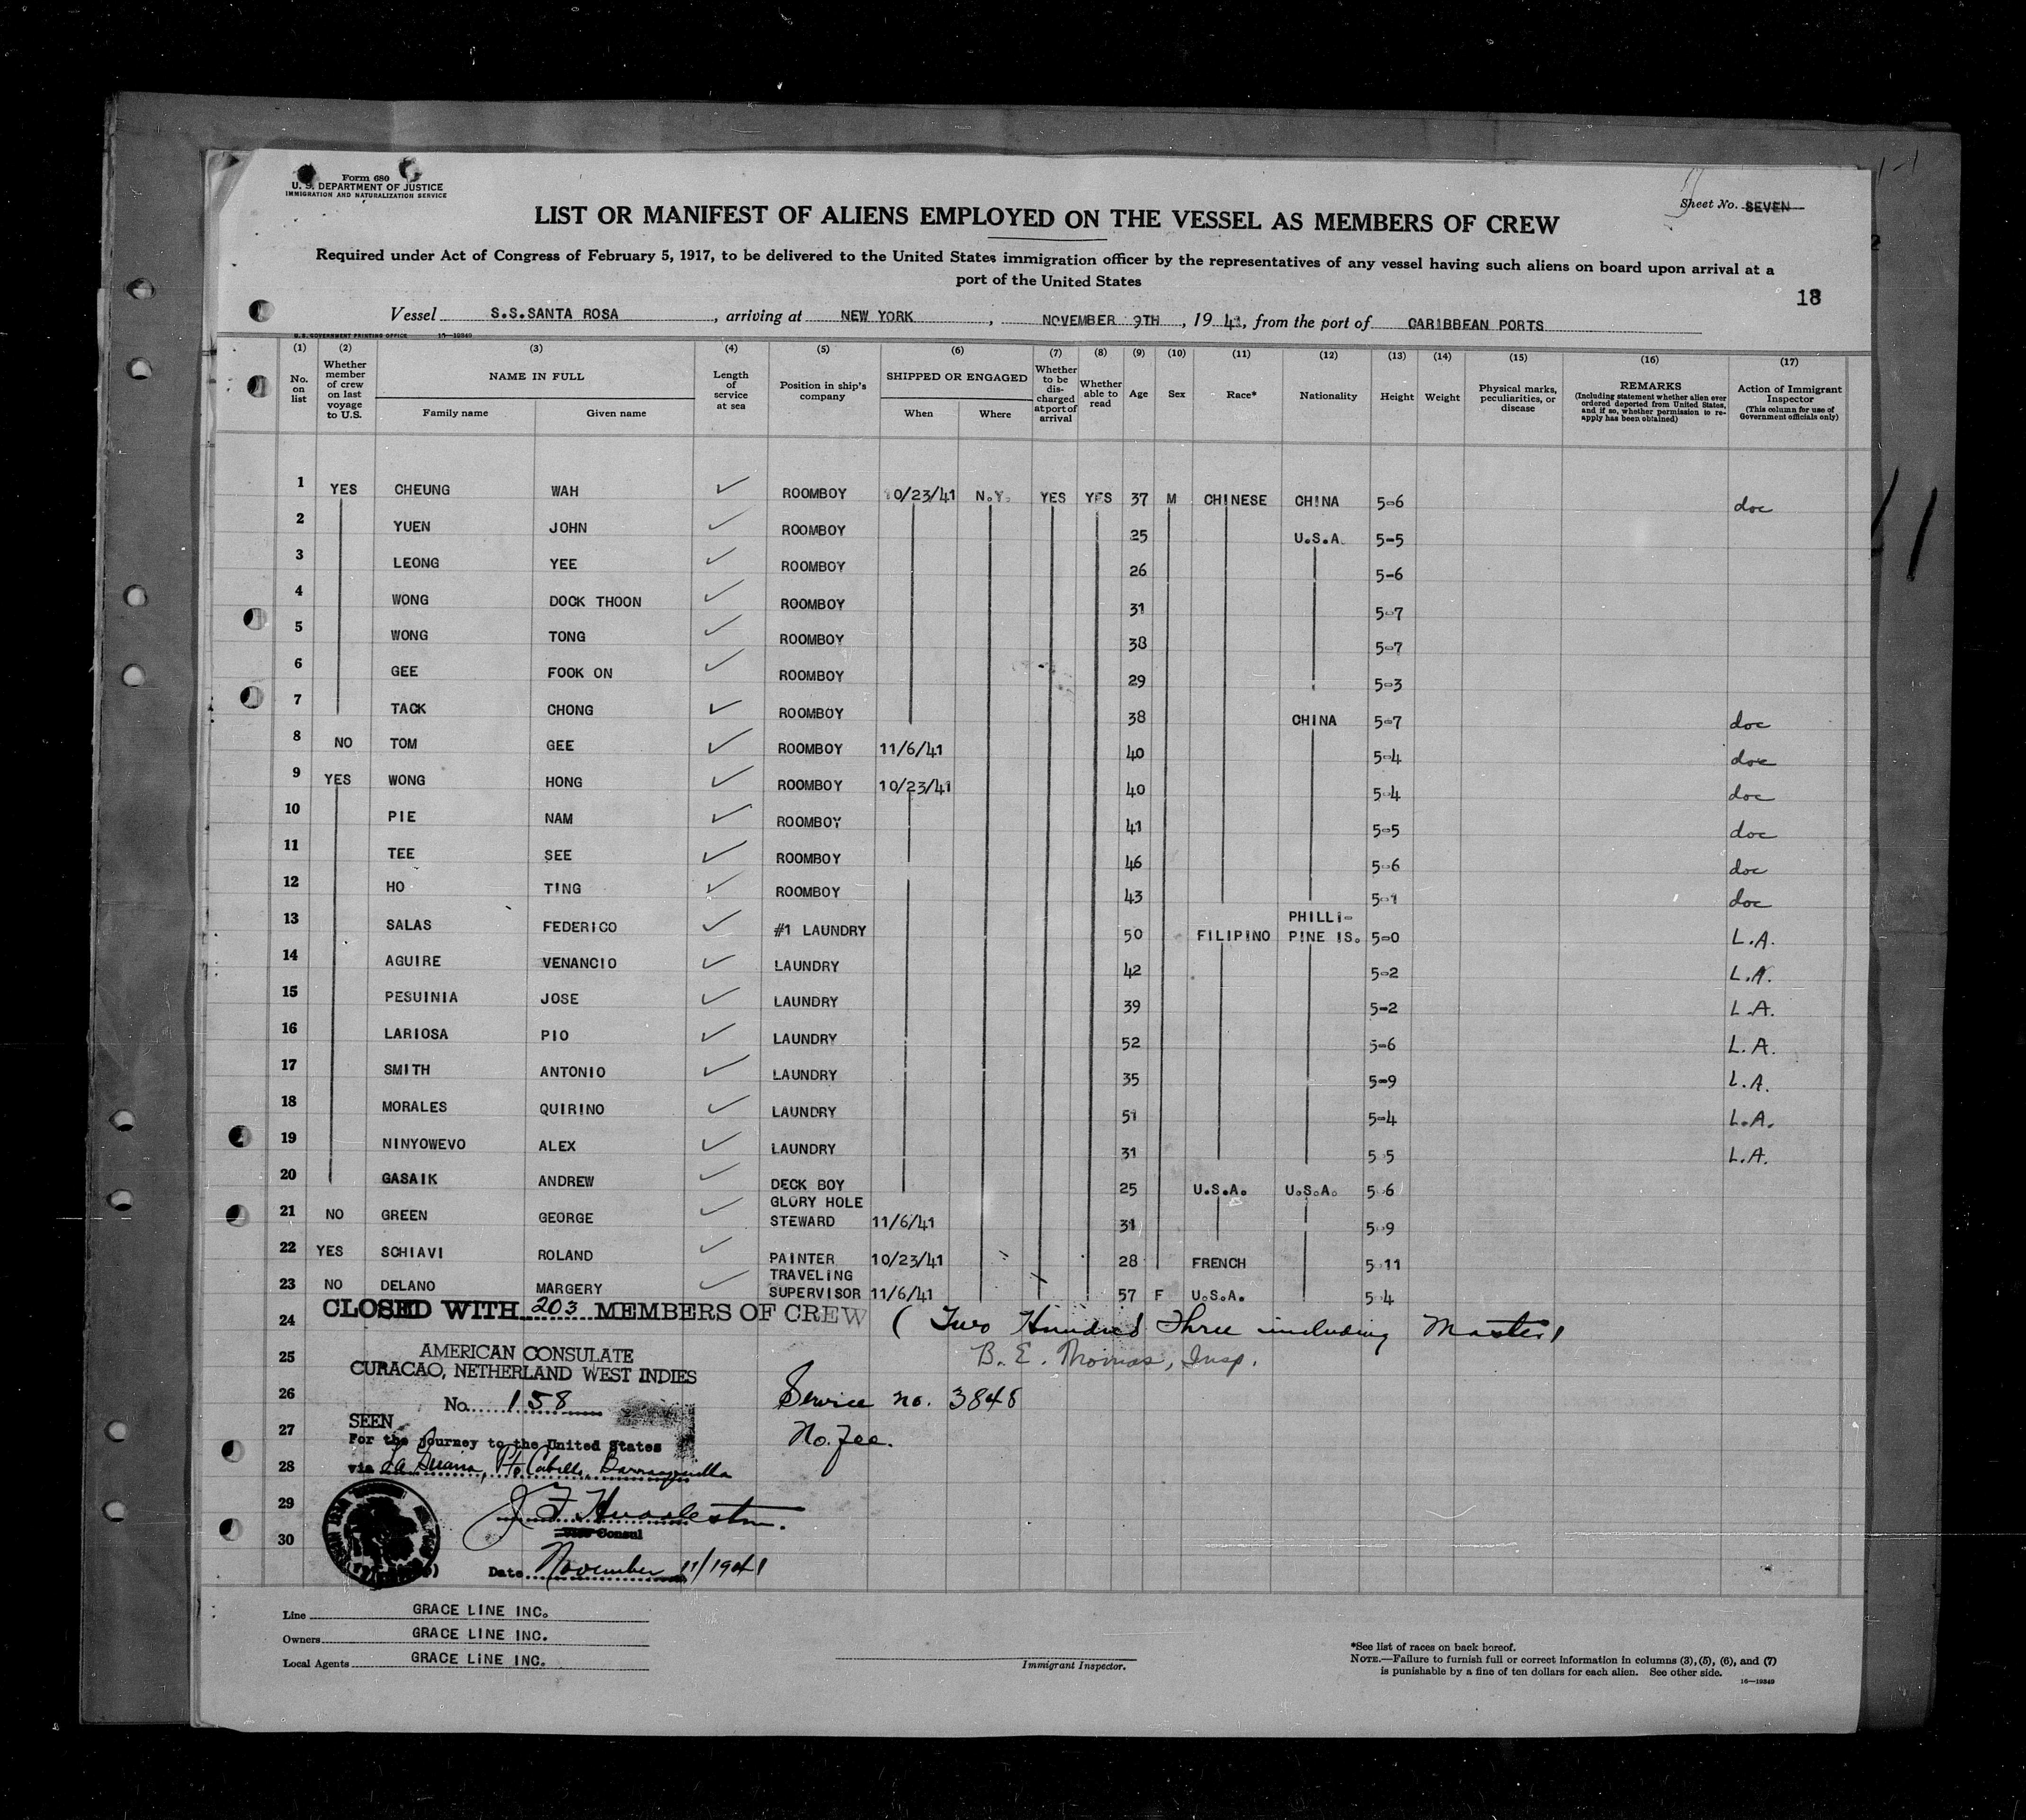 Form 680
U. S. DEPARTMENT OF JUSTICE
IMMIGRATION AND NATURALIZATION SERVICE
Sheet No. SEVEN
LIST OR MANIFEST OF ALIENS EMPLOYED ON THE VESSEL AS MEMBERS OF CREW
Required under Act of Congress of February 5, 1917, to be delivered to the United States immigration officer by the representatives of any vessel having such aliens on board upon arrival at a
port of the United States
18
Vessel S.S.SANTA ROSA, arriving at NEW YORK, NOVEMBER 9TH, 1941, from the port of CARIBBEAN PORTS
U. S. GOVERNMENT PRINTING OFFICE 16—19349
(1) (2) (3) (4) (5) (6) (7) (8) (9) (10) (11) (12) (13) (14) (15) (16) (17)
No. on list
Whether member of crew on last voyage to U.S.
NAME IN FULL
Family name Given name
Length of service at sea
Position in ship's company
SHIPPED OR ENGAGED
When Where
Whether to be discharged at port of arrival
Whether able to read
Age Sex Race* Nationality Height Weight
Physical marks, peculiarities, or disease
REMARKS
(Including statement whether alien ever ordered deported from United States, and if so, whether permission to re-apply has been obtained)
Action of Immigrant Inspector
(This column for use of Government officials only)
1 YES CHEUNG WAH ✓ ROOMBOY 10/23/41 N.Y. YES YES 37 M CHINESE CHINA 5-6 doc
2 YUEN JOHN ✓ ROOMBOY 25 U.S.A. 5-5
3 LEONG YEE ✓ ROOMBOY 26 5-6
4 WONG DOCK THOON ✓ ROOMBOY 31 5-7
5 WONG TONG ✓ ROOMBOY 38 5-7
6 GEE FOOK ON ✓ ROOMBOY 29 5-3
7 TACK CHONG ✓ ROOMBOY 38 CHINA 5-7 doc
8 NO TOM GEE ✓ ROOMBOY 11/6/41 40 5-4 doc
9 YES WONG HONG ✓ ROOMBOY 10/23/41 40 5-4 doc
10 PIE NAM ✓ ROOMBOY 41 5-5 doc
11 TEE SEE ✓ ROOMBOY 46 5-6 doc
12 HO TING ✓ ROOMBOY 43 5-1 doc
13 SALAS FEDERICO ✓ #1 LAUNDRY 50 FILIPINO PHILLI-PINE IS. 5-0 L.A.
14 AGUIRE VENANCIO ✓ LAUNDRY 42 5-2 L.A.
15 PESUINIA JOSE ✓ LAUNDRY 39 5-2 L.A.
16 LARIOSA PIO ✓ LAUNDRY 52 5-6 L.A.
17 SMITH ANTONIO ✓ LAUNDRY 35 5-9 L.A.
18 MORALES QUIRINO ✓ LAUNDRY 51 5-4 L.A.
19 NINYOWEVO ALEX ✓ LAUNDRY 31 5-5 L.A.
20 GASAIK ANDREW ✓ DECK BOY 25 U.S.A. U.S.A. 5-6
21 NO GREEN GEORGE ✓ GLORY HOLE STEWARD 11/6/41 31 5-9
22 YES SCHIAVI ROLAND ✓ PAINTER 10/23/41 28 FRENCH 5-11
23 NO DELANO MARGERY ✓ TRAVELING SUPERVISOR 11/6/41 57 F U.S.A. 5-4
CLOSED WITH 203 MEMBERS OF CREW
24 ( Two Hundred Three including Master)
25 B. E. Thomas, Insp.
AMERICAN CONSULATE
CURACAO, NETHERLAND WEST INDIES
26 No. 158 Service no. 3848
SEEN
27 For the Journey to the United States No. fee.
28 via La Guaira, Pto Cabello, Barranquilla
29
Vice Consul
30
Date November 11/1941
Line GRACE LINE INC.
Owners GRACE LINE INC.
Local Agents GRACE LINE INC.
Immigrant Inspector.
*See list of races on back hereof.
NOTE.—Failure to furnish full or correct information in columns (3), (5), (6), and (7)
is punishable by a fine of ten dollars for each alien. See other side.
16—19349